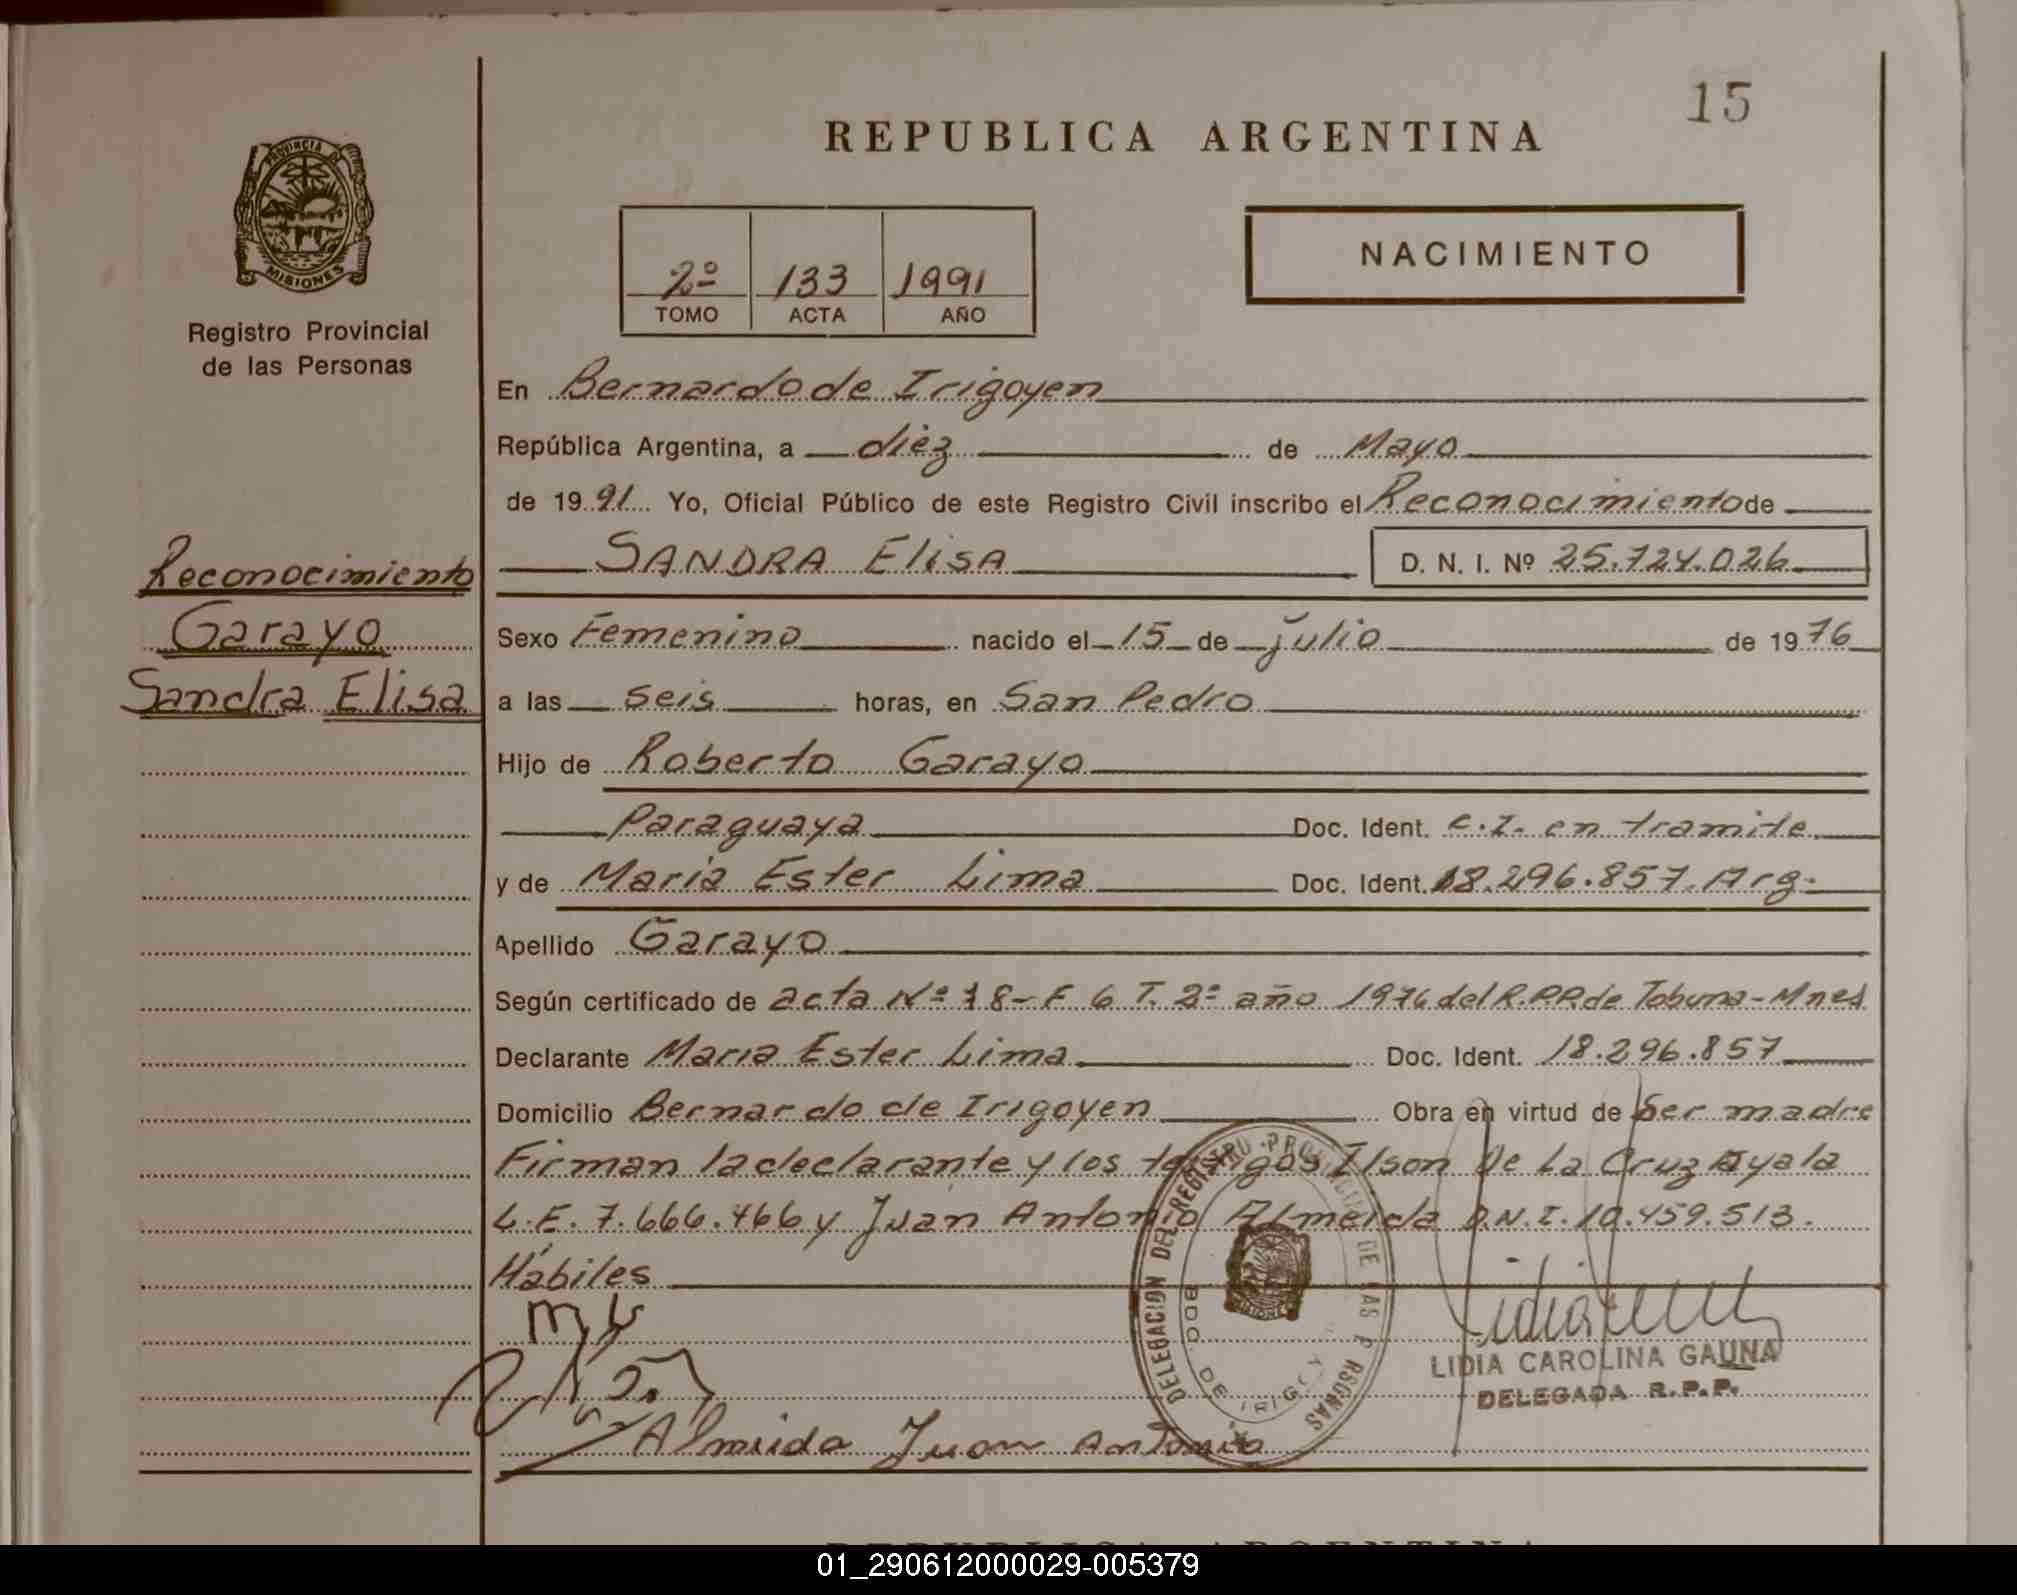 15
REPUBLICA ARGENTINA
PROVINCIA DE
MISIONES
Registro Provincial
de las Personas
2º 133 1991
TOMO ACTA AÑO
NACIMIENTO
En Bernardo de Irigoyen
República Argentina, a diez de Mayo
de 1991 Yo, Oficial Público de este Registro Civil inscribo el Reconocimiento de
SANDRA Elisa D. N. I. Nº 25.724.026
Reconocimiento
Garayo
Sandra Elisa
Sexo Femenino nacido el 15 de julio de 1976
a las seis horas, en San Pedro
Hijo de Roberto Garayo
Paraguaya Doc. Ident. C.I. en tramite
y de Maria Ester Lima Doc. Ident. 18.296.857 Arg.
Apellido Garayo
Según certificado de acta Nº 18-F 6 T. 2º año 1976 del R.P.P. de Tobuna-Mnes
Declarante Maria Ester Lima Doc. Ident. 18.296.857
Domicilio Bernardo de Irigoyen Obra en virtud de Ser madre
Firman la declarante y los testigos Ilson De La Cruz Ayala
L.E. 7.666.466 y Juan Antonio Almeida D.N.I. 10.459.513.
Hábiles
DELEGACION DEL REGISTRO PROVINCIAL DE LAS PERSONAS
BDO. DE IRIGOYEN
LIDIA CAROLINA GAUNA
DELEGADA R.P.P.
Almeida Juan Antonio
REPUBLICA ARGENTINA
01_290612000029-005379